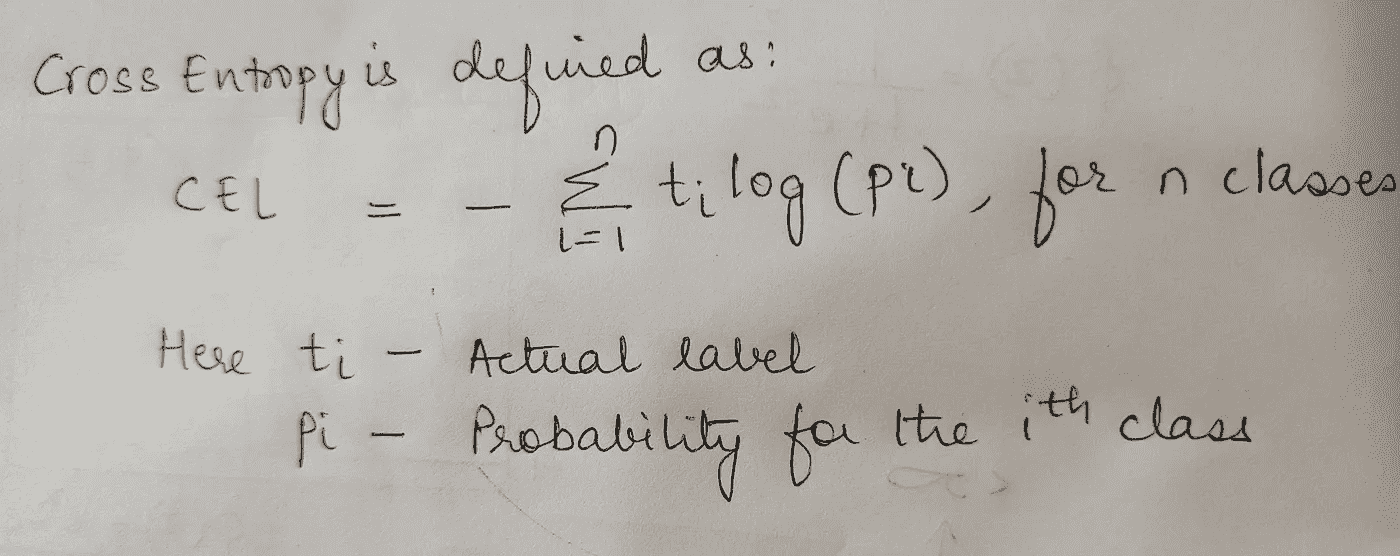 Cross Entropy is defined as:
CEL = - n Σ i=1 ti log (pi), for n classes
Here ti - Actual label
pi - Probability for the ith class